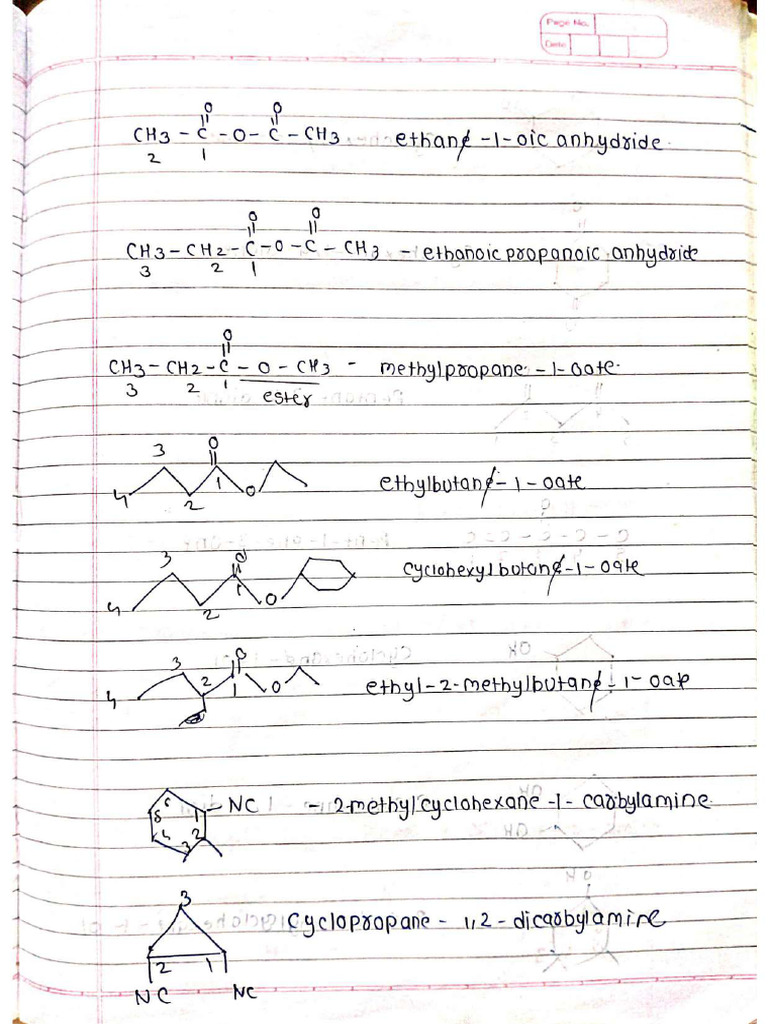 Page No.
Date
O O
CH3 - C - O - C - CH3 ethane -1-oic anhydride.
2 1
O O
CH3-CH2-C-O-C-CH3 - ethanoic propanoic anhydride
3 2 1
O
CH3-CH2-C-O-CH3 - methylpropane -1-oate.
3 2 1 ester
3 O
4 2 1 O ethylbutane-1-oate
3 O
4 2 1 O cyclohexylbutane-1-oate
3 2 O
4 1 O ethyl-2-methylbutane-1-oate
6 1 NC - 2-methylcyclohexane -1- carbylamine.
5 2
4 3
3
Cyclopropane - 1,2 - dicarbylamine
2 1
NC NC